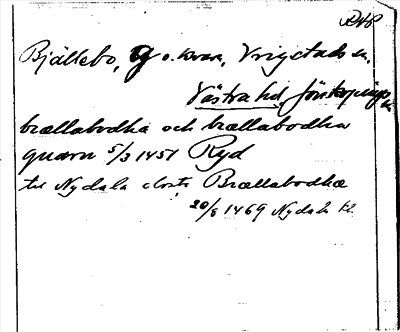 RAP
Bjällebo, g o. kvarn, Vrigstads sn,
Västra hd, Jönköpings l.
brællabodha och brællabodha
quærn 5/3 1451 Ryd
til Nydala clost. Brællabodhæ
20/8 1469 Nydala kl.